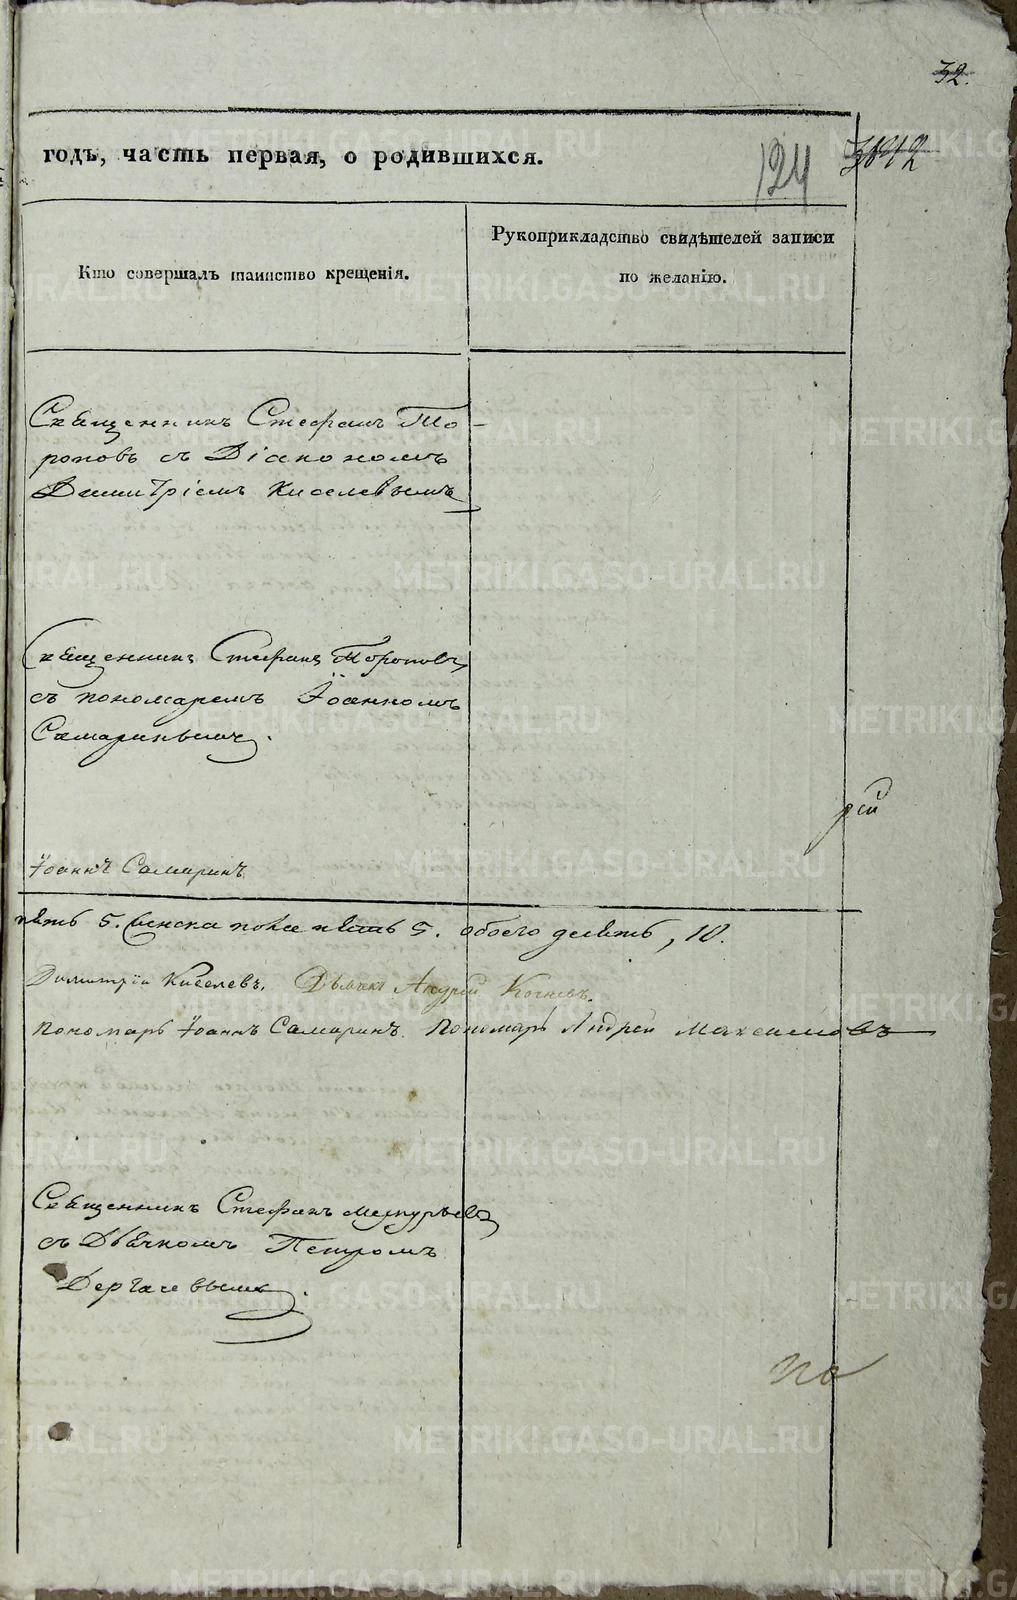 32.
годъ, часть первая, о родившихся.
124
Кто совершалъ таинство крещенія.
Рукоприкладство свидѣтелей записи
по желанію.
Священникъ Стефанъ То-
роповъ съ Діакономъ
Димитріемъ Киселевымъ
Священникъ Стефанъ Тороповъ
съ пономаремъ Іоанномъ
Самаринымъ.
рей
Іоаннъ Самаринъ
пять 5. женска пола пять 5. обоего десять, 10.
Димитрій Киселевъ. Дьячекъ Андрей
пономарь Іоаннъ Самаринъ. Пономарь Андрей Максимовъ
Священникъ Стефанъ Меркурьевъ
съ Дьячкомъ Петромъ
Дергачевымъ.
по
METRIKI.GASO-URAL.RU